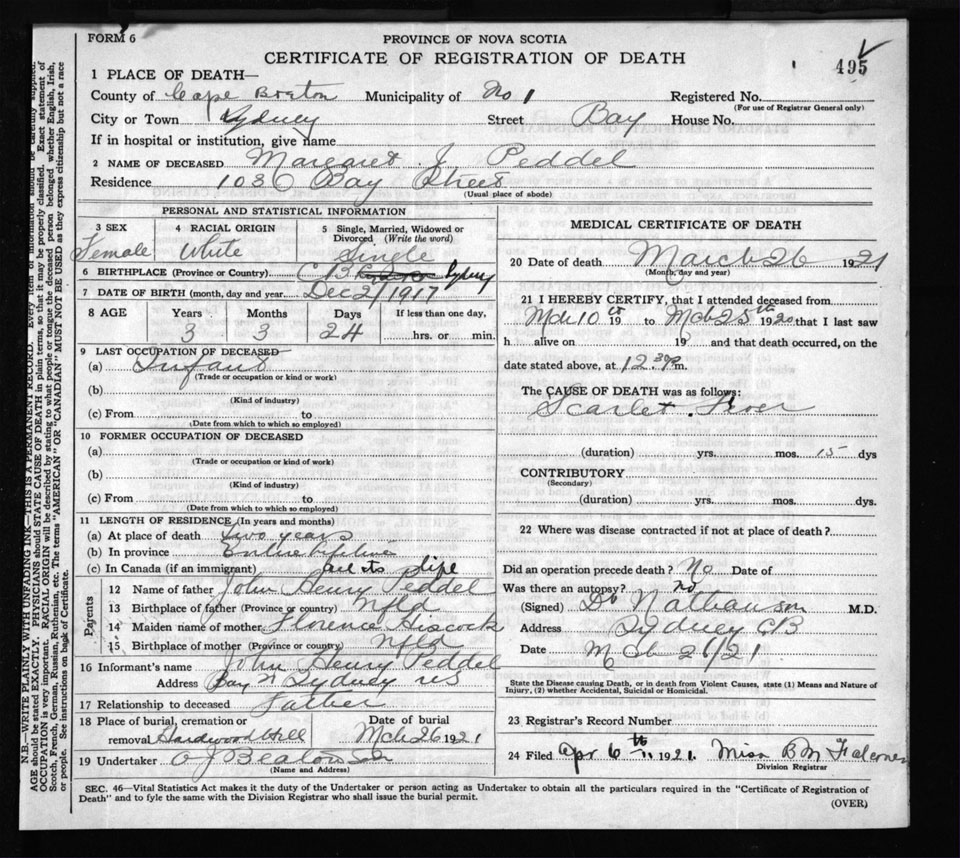 FORM 6
PROVINCE OF NOVA SCOTIA
CERTIFICATE OF REGISTRATION OF DEATH
495
1 PLACE OF DEATH—
County of Cape Breton Municipality of No 1 Registered No.
(For use of Registrar General only)
City or Town Sydney Street Bay House No.
If in hospital or institution, give name
2 NAME OF DECEASED Margaret J. Peddel
Residence 103 Bay Street
(Usual place of abode)
PERSONAL AND STATISTICAL INFORMATION
3 SEX 4 RACIAL ORIGIN 5 Single, Married, Widowed or Divorced (Write the word)
Female White Single
6 BIRTHPLACE (Province or Country) Sydney
7 DATE OF BIRTH (month, day and year) Dec 2/1917
8 AGE Years Months Days If less than one day,
3 3 24 hrs. or min.
9 LAST OCCUPATION OF DECEASED
(a) Infant
(Trade or occupation or kind or work)
(b)
(Kind of industry)
(c) From to
(Date from which to which so employed)
10 FORMER OCCUPATION OF DECEASED
(a)
(Trade or occupation or kind or work)
(b)
(Kind of industry)
(c) From to
(Date from which to which so employed)
11 LENGTH OF RESIDENCE (In years and months)
(a) At place of death two years
(b) In province Entire lifetime
(c) In Canada (if an immigrant) all its life
Parents
12 Name of father John Henry Peddel
13 Birthplace of father (Province or country) Nfld
14 Maiden name of mother Florence Hiscock
15 Birthplace of mother (Province or country) Nfld
16 Informant's name John Henry Peddel
Address Bay St Sydney NS
17 Relationship to deceased Father
18 Place of burial, cremation or removal Hardwood Hill Date of burial Mch 26 1921
19 Undertaker
(Name and Address)
MEDICAL CERTIFICATE OF DEATH
20 Date of death March 26 1921
(Month, day and year)
21 I HEREBY CERTIFY, that I attended deceased from
Mch 10th 19 to Mch 25th 1920 that I last saw
h alive on 19 and that death occurred, on the
date stated above, at 12.30 P.m.
The CAUSE OF DEATH was as follows:
Scarlet Fever
(duration) yrs. mos. 15 dys
CONTRIBUTORY
(Secondary)
(duration) yrs. mos. dys.
22 Where was disease contracted if not at place of death?
Did an operation precede death? No Date of
Was there an autopsy? No
(Signed) Dr Nathanson M.D.
Address Sydney CB
Date Mch 26/21
State the Disease causing Death, or in death from Violent Causes, state (1) Means and Nature of
Injury, (2) whether Accidental, Suicidal or Homicidal.
23 Registrar's Record Number
24 Filed Apr 6th 1921. Miss B M Falconer
Division Registrar
SEC. 46—Vital Statistics Act makes it the duty of the Undertaker or person acting as Undertaker to obtain all the particulars required in the "Certificate of Registration of
Death" and to fyle the same with the Division Registrar who shall issue the burial permit.
(OVER)
N.B.—WRITE PLAINLY WITH UNFADING INK—THIS IS A PERMANENT RECORD. Every item of information should be carefully supplied.
AGE should be stated EXACTLY. PHYSICIANS should STATE CAUSE OF DEATH in plain terms, so that it may be properly classified. Exact statement of
OCCUPATION is very important. RACIAL ORIGIN will be described by stating to what people or tongue the deceased person belonged whether English, Irish,
Scotch, French, German, Russian, Ruthenian, etc. The terms "AMERICAN" OR "CANADIAN" MUST NOT BE USED as they express citizenship but not a race
or people. See instructions on back of Certificate.